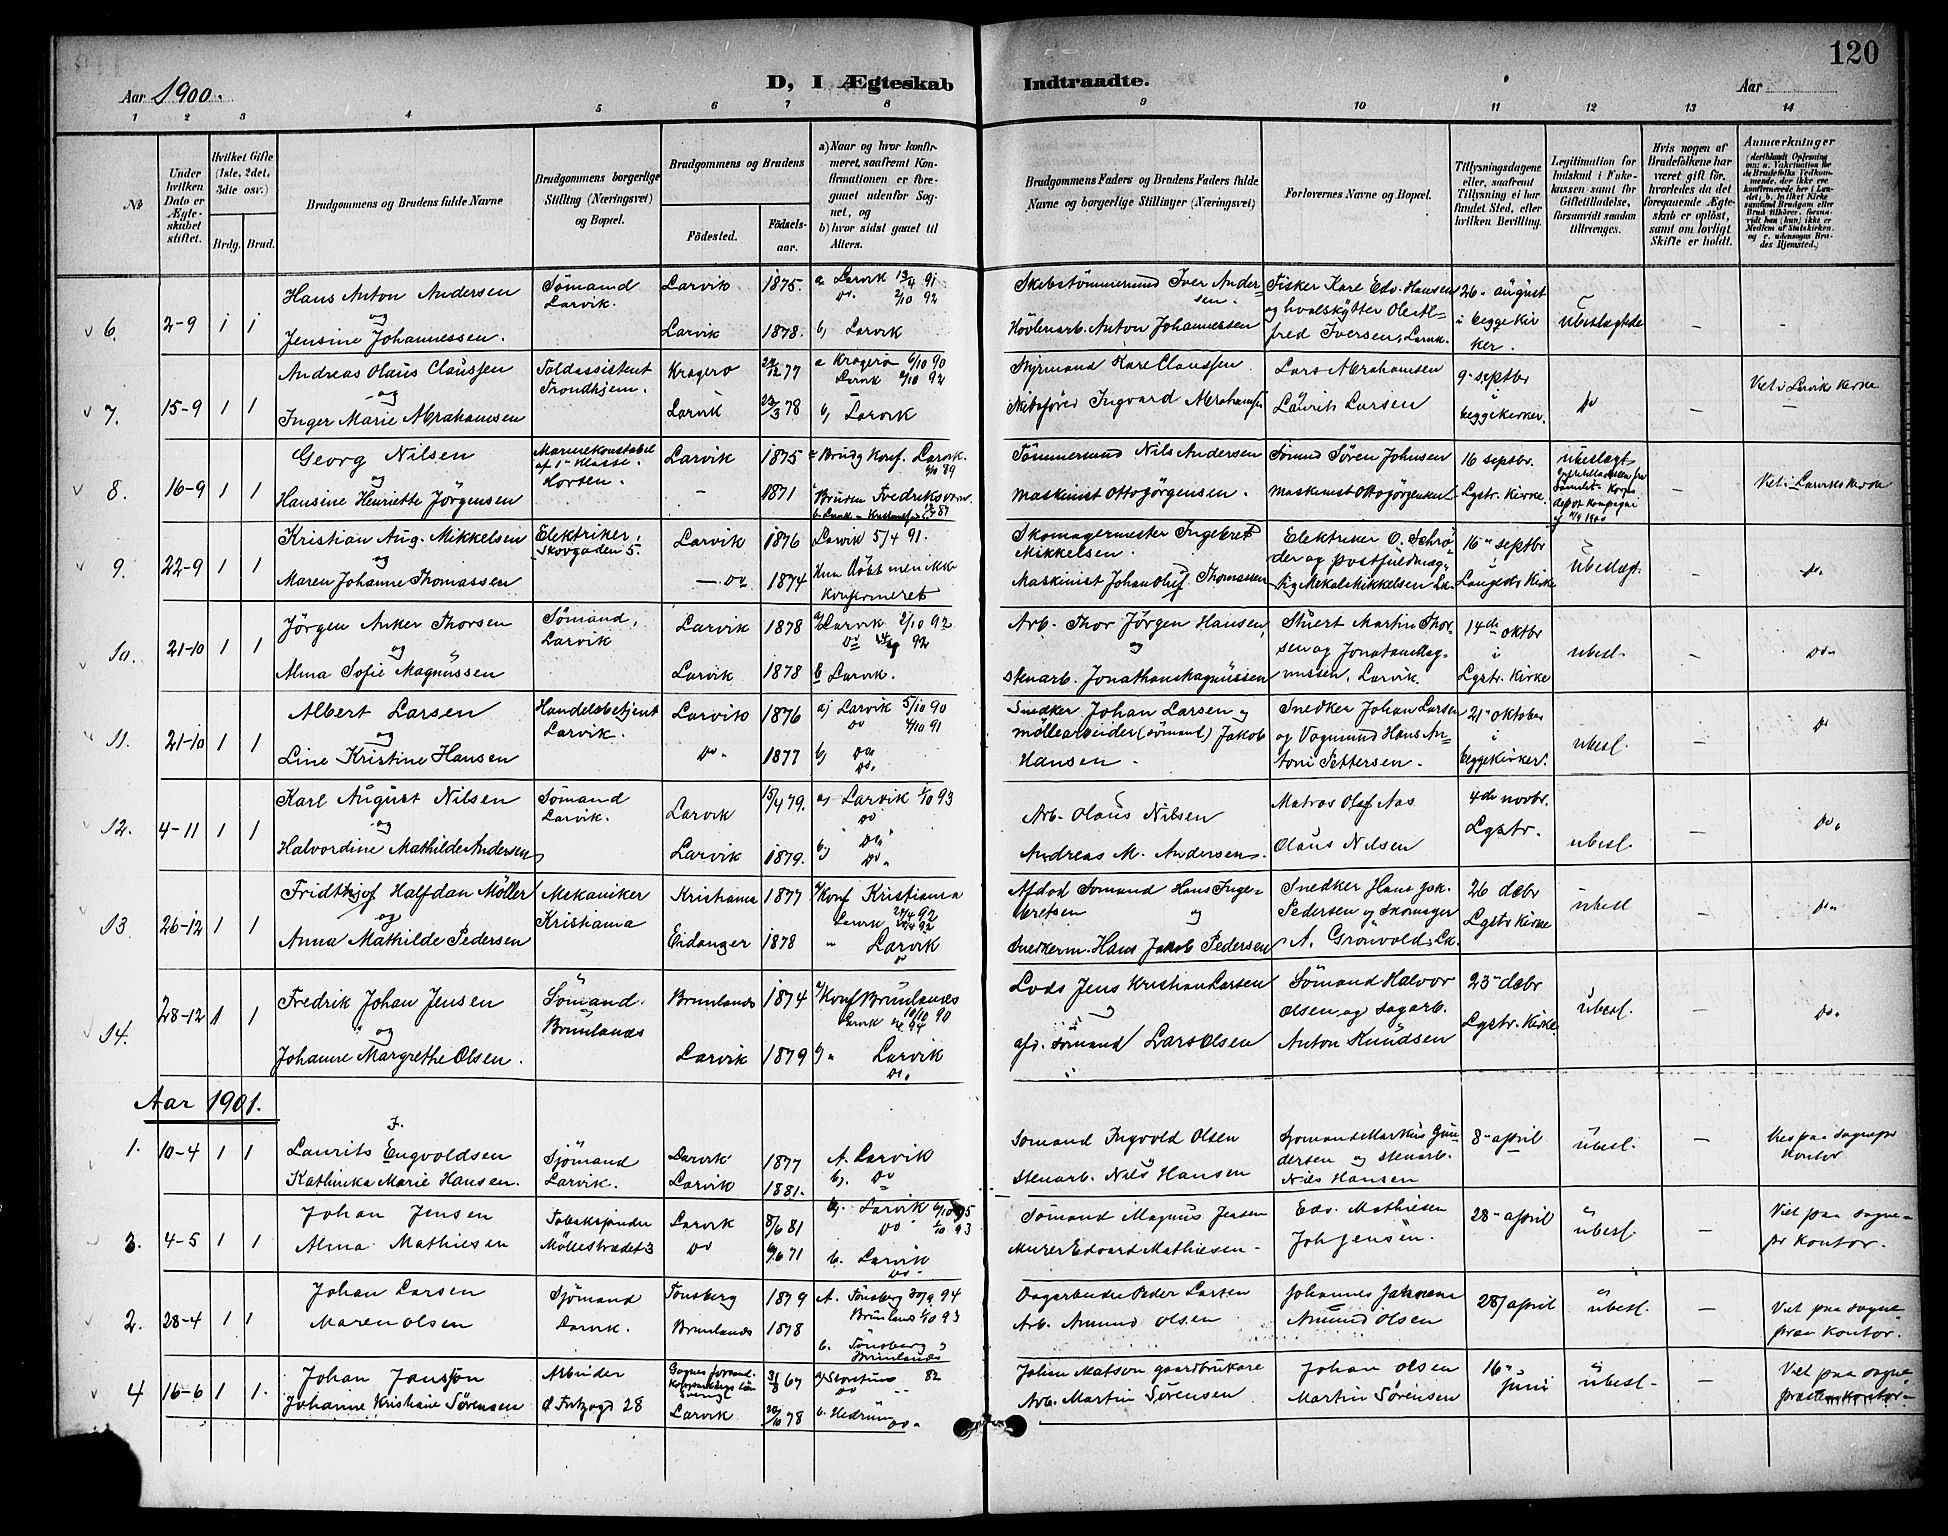 120
Aar 1900.
D, I Ægteskab Indtraadte.
Aar
1 2 3 4 5 6 7 8 9 10 11 12 13 14
No
Under hvilken Dato er Ægteskabet stiftet.
Hvilket Gifte (1ste, 2det, 3die osv.)
Brdg. Brud.
Brudgommens og Brudens fulde Navne
Brudgommens borgerlige Stilling (Næringsvei) og Bopæl.
Brudgommens og Brudens
Fødested.
Fødselsaar.
a) Naar og hvor konfirmeret, saafremt Konfirmationen er foregaaet udenfor Sognet, og
b) hvor sidst gaaet til Alters.
Brudgommens Faders og Brudens Faders fulde Navne og borgerlige Stillinger (Næringsvei)
Forlovernes Navne og Bopæl.
Tillysningsdagene eller, saafremt Tillysning ei har fundet Sted, efter hvilken Bevilling.
Legitimation for Indskud i Enkekassen samt for Giftetilladelse, forsaavidt saadan tiltrænges.
Hvis nogen af Brudefolkene har været gift før, hvorledes da det foregaaende Ægteskab er opløst, samt om lovligt Skifte er holdt.
Anmærkninger
6. 2-9 1 1 Hans Anton Andersen
og
Jensine Johannessen.
Sømand
Larvik.
Larvik 1875.
Larvik 1878.
a Larvik 13/4 91
Do. 2/10 92
b) Larvik
Skibstømmermand Iver Andersen.
Høvlerarb. Anton Johannessen
Fisker Karl Edv. Hansen
og hvalskytter Ole Alfred Iversen, Larvik.
26 august
i begge kirker.
ubeslægtede
–
–
7. 15-9 1 1 Andreas Olaus Claussen
og
Inger Marie Abrahamsen
Toldassistent
Trondhjem.
Kragerø 24/12 77
Larvik 23/3 78
a Kragerø 6/10 90
Larvik 2/10 92
b) Larvik
Styrmand Karl Claussen
Skibsfører Ingvard Abrahamsen
Lars Abrahamsen
Laurits Larsen
9 septbr
i
begge kirker.
Do
–
Viet i Larviks kirke
8. 16-9 1 1 Georg Nilsen
og
Hansine Henriette Jørgensen
Marinekonstabel
af 1ste Klasse.
Horten.
Larvik 1875
– 1871
a Brudg Konf. Larvik. 6/10 89
Bruden Fredriksværn
Tømmermand Nils Andersen
Maskinist Otto Jørgensen.
Sømd Søren Johnsen
Maskinist Otto Jørgensen
16 septbr.
Lgstr. Kirke
ubeslægt
–
Viet i Larviks kirke
9. 22-9 1 1 Kristian Aug. Mikkelsen
og
Maren Johanne Thomassen
Elektriker,
Skovgaden 5
Larvik 1876
– Do 1874
Larvik 5/4 91.
Hun Døbt men ikke
konfirmeret
Skomagermester Ingebret
Mikkelsen.
Maskinist Johan Oluf Thomassen
Elektriker O. Schrøder og postfuldmægtig
Mikal Mikkelsen La-
16 septbr
Langestr. Kirke
ubeslægt.
–
Do.
10. 21-10 1 1 Jørgen Anker Thorsen
og
Alma Sofie Magnussen
Sømand,
Larvik
Larvik 1878
Larvik 1878
a) Larvik 2/10 92
Do 92
b Larvik.
Arb. Thor Jørgen Hansen,
og
Stenarb. Jonathan Magnussen
Stuert Martin Thorsen og Jonatan Magnussen, Larvik.
14de oktbr
i
Lgstr. Kirke
ubesl.
–
Do.
11. 21-10 1 1 Albert Larsen
og
Line Kristine Hansen
Handelsbetjent
Larvik.
Larvik 1876
Do. 1877
a) Larvik 5/10 90
Do 4/10 91
b) Do
Do.
Snedker Johan Larsen og
møllearbeider (sømand) Jakob
Hansen.
Snedker Johan Larsen
og Vognmand Hans Antoni Pettersen.
21 oktober
i
begge kirker.
ubesl.
–
Do
12. 4-11 1 1 Karl August Nilsen
og
Halvordine Mathilde Andersen
Sømand
Larvik.
Larvik 15/4 79.
Larvik 1879.
a) Larvik 1/10 93
Do
b) Do
Do.
Arb. Olaus Nilsen
Andreas M. Andersen.
Matros Olaf Aas
Olaus Nilsen
4de novbr.
Lgstr.
ubesl.
–
Do.
13. 26-12 1 1 Fridthjof Halfdan Møller
og
Anna Mathilde Pedersen
Mekaniker
Kristiania
Kristiania 1877
Eidanger 1878
a) Konf Kristiania
Larvik 24/4 92
" Larvik
Afdød Sømand Hans Ingebretsen
og
Snedkerm. Hans Jakob Pedersen
Snedker Hans Jak.
Pedersen og Skomager
A. Grønvold, Lk.
26 decbr
Lgstr Kirke
ubesl
–
Do.
14. 28-12 1 1 Fredrik Johan Jensen
og
Johanne Margrethe Olsen.
Sømand.
Brunlanæs
Brunlanæs 1874
Larvik 1879
a) Konf Brunlanæs 10/10 90
Larvik 94
b) " Larvik
Do.
Lods Jens Kristian Larsen
og
afd. sømand Lars Olsen
Sømand Halvor
Olsen og sagarb.
Anton Knudsen
23 decbr
Lgstr. Kirke
ubesl.
–
Do.
Aar 1901.
1. 10-4 1 1 Laurits Engvoldsen
I.
Kathinka Marie Hansen.
Sjømand
Larvik.
Larvik 1877
Larvik 1881.
A. Larvik
b). Do
Sømand Ingvold Olsen
Stenarb. Nils Hansen
Sjømand Markus Gundersen og stenarb.
Nils Hansen
8 april
ubesl.
–
Vies paa sognepr
kontor
3. 4-5 1 1 Johan Jensen
Alma Mathiesen
Tobakspinder
Møllestrædet 3
Larvik 8/6 81
Do 6/6 71
a). Larvik 6/10 95
Do 1/10 93
b. Larvik
Do.
Sømand Magnus Jensen
Murer Edvard Mathiesen.
Edv. Mathiesen
Joh Jensen.
28 april
ubesl.
–
Viet paa sognepr kontor.
2. 28-4 1 1 Johan Larsen
Maren Olsen
Sjømand
Larvik.
Tønsberg 1879
Brunlanæs 1878
A. Tønsberg 30/9 94
Brunlanæs 1/10 93
b. Tønsberg og
Brunlanæs
Dagarbeider Peder Larsen
Arb. Amund Olsen
Johannes
Amund Olsen
28/ april
ubesl.
–
Viet paa sognepræ kontor.
4 16-6 1 1. Johan Jansson
Johanne Kristiane Sørensen
Arbeider
Ø Fritzøgd 28
Kopparbergs län
Sverige 31/8 67
Larvik 20/10 78
a) 82
Do
b. Hedrum
Do.
Johan Matson gaardbrukare
Arb. Martin Sørensen
Johan Olsen
Martin Sørensen
16
juni
ubesl.
–
Viet paa sognepræstens kontor